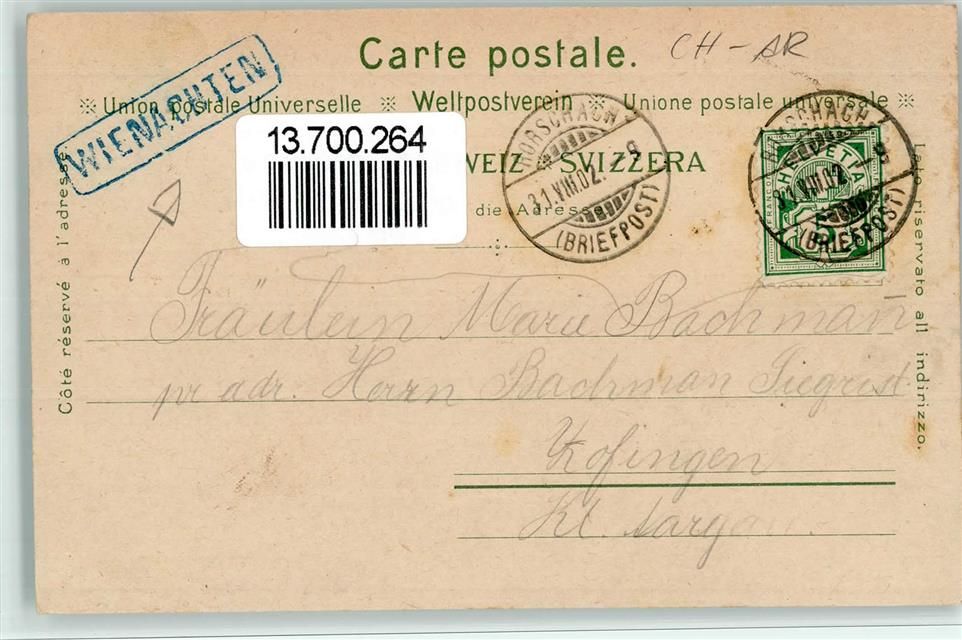 Carte postale.
CH - AR
WIENACHTEN
※ Union postale Universelle ※ Weltpostverein ※ Unione postale universale ※
13.700.264
WEIZ • SVIZZERA
die Adresse
RORSCHACH
31.VIII.02. 9
(BRIEFPOST)
RORSCHACH
31.VIII.02. 9
(BRIEFPOST)
FRANCO
HELVETIA
5
Côté réservé à l'adresse
Lato riservato all indirizzo.
Fräulein Marie Bachmann
pr adr. Herrn Bachman Siegrist
Zofingen
Kt. Aargau.